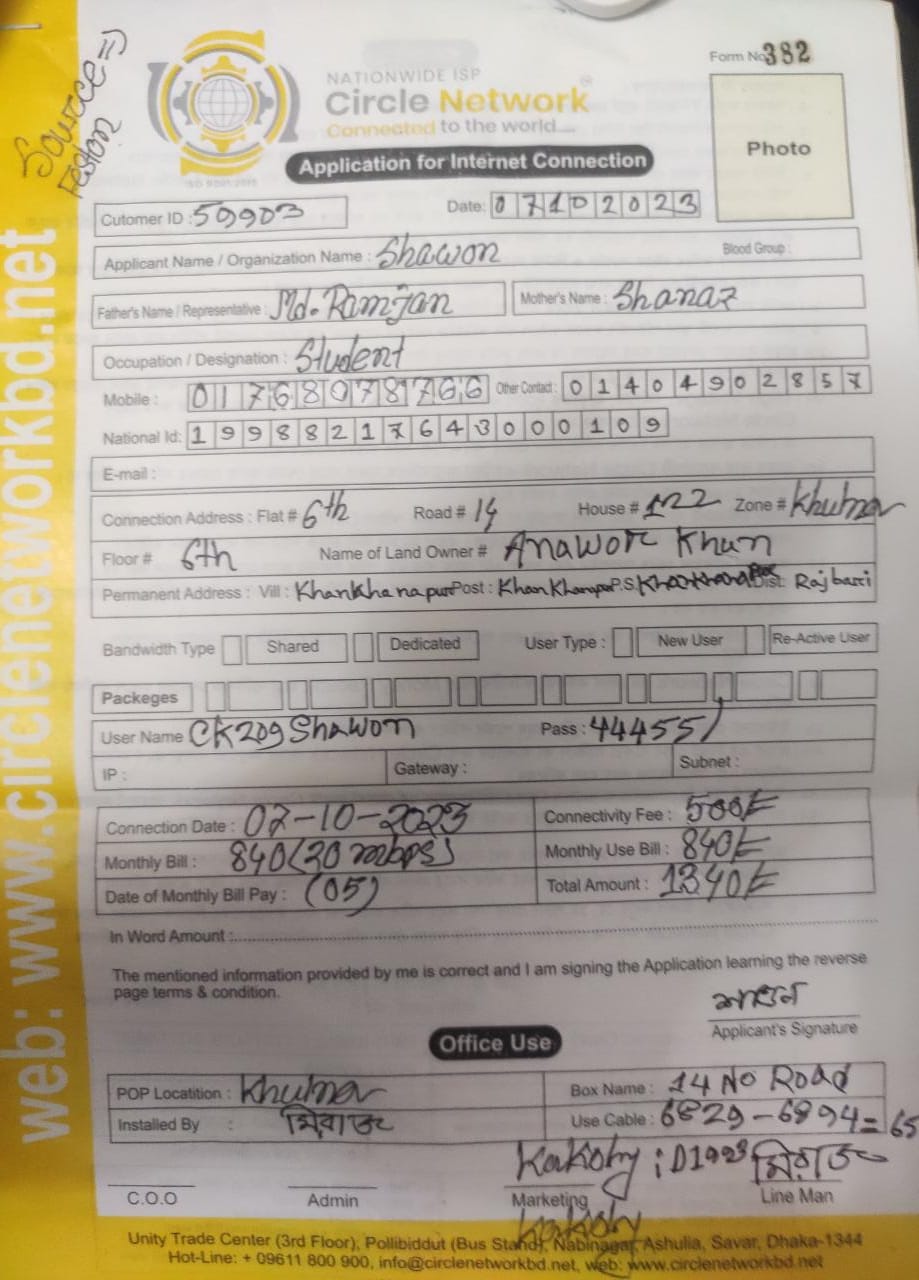 Source => Feston
Form No 382
NATIONWIDE ISP
Circle Network
Connected to the world....
ISO 9001:2015
Photo
Application for Internet Connection
Cutomer ID : 59903 Date: 07102023
Applicant Name / Organization Name : Shawon Blood Group :
Father's Name / Representative : Md. Ramjan Mother's Name : Shanaz
Occupation / Designation : Student
Mobile : 01768078766 Other Contact : 01404902857
National Id: 19988217643000109
E-mail :
Connection Address : Flat # 6th Road # 14 House # 122 Zone # Khulna
Floor # 6th Name of Land Owner # Anawor Khan
Permanent Address : Vill : Khankhanapur Post : Khan Khanapur P.S. Dist: Rajbari
Bandwidth Type Shared Dedicated User Type : New User Re-Active User
Packeges
User Name CK209Shawon Pass : 444551
IP : Gateway : Subnet :
Connection Date : 07-10-2023 Connectivity Fee : 500/=
Monthly Bill : 840(20 mbps) Monthly Use Bill : 840/=
Date of Monthly Bill Pay : (05) Total Amount : 1340/=
In Word Amount :
The mentioned information provided by me is correct and I am signing the Application learning the reverse
page terms & condition.
Applicant's Signature
Office Use
POP Locatition : Khulna Box Name : 14 No Road
Installed By : মিরাজ Use Cable : 6829-6894=65
Kakoly : ID1993 মিরাজ
C.O.O Admin Marketing Line Man
Kakoly
Unity Trade Center (3rd Floor), Pollibiddut (Bus Stand), Nabinagar, Ashulia, Savar, Dhaka-1344
Hot-Line: + 09611 800 900, info@circlenetworkbd.net, web: www.circlenetworkbd.net
web: www.circlenetworkbd.net